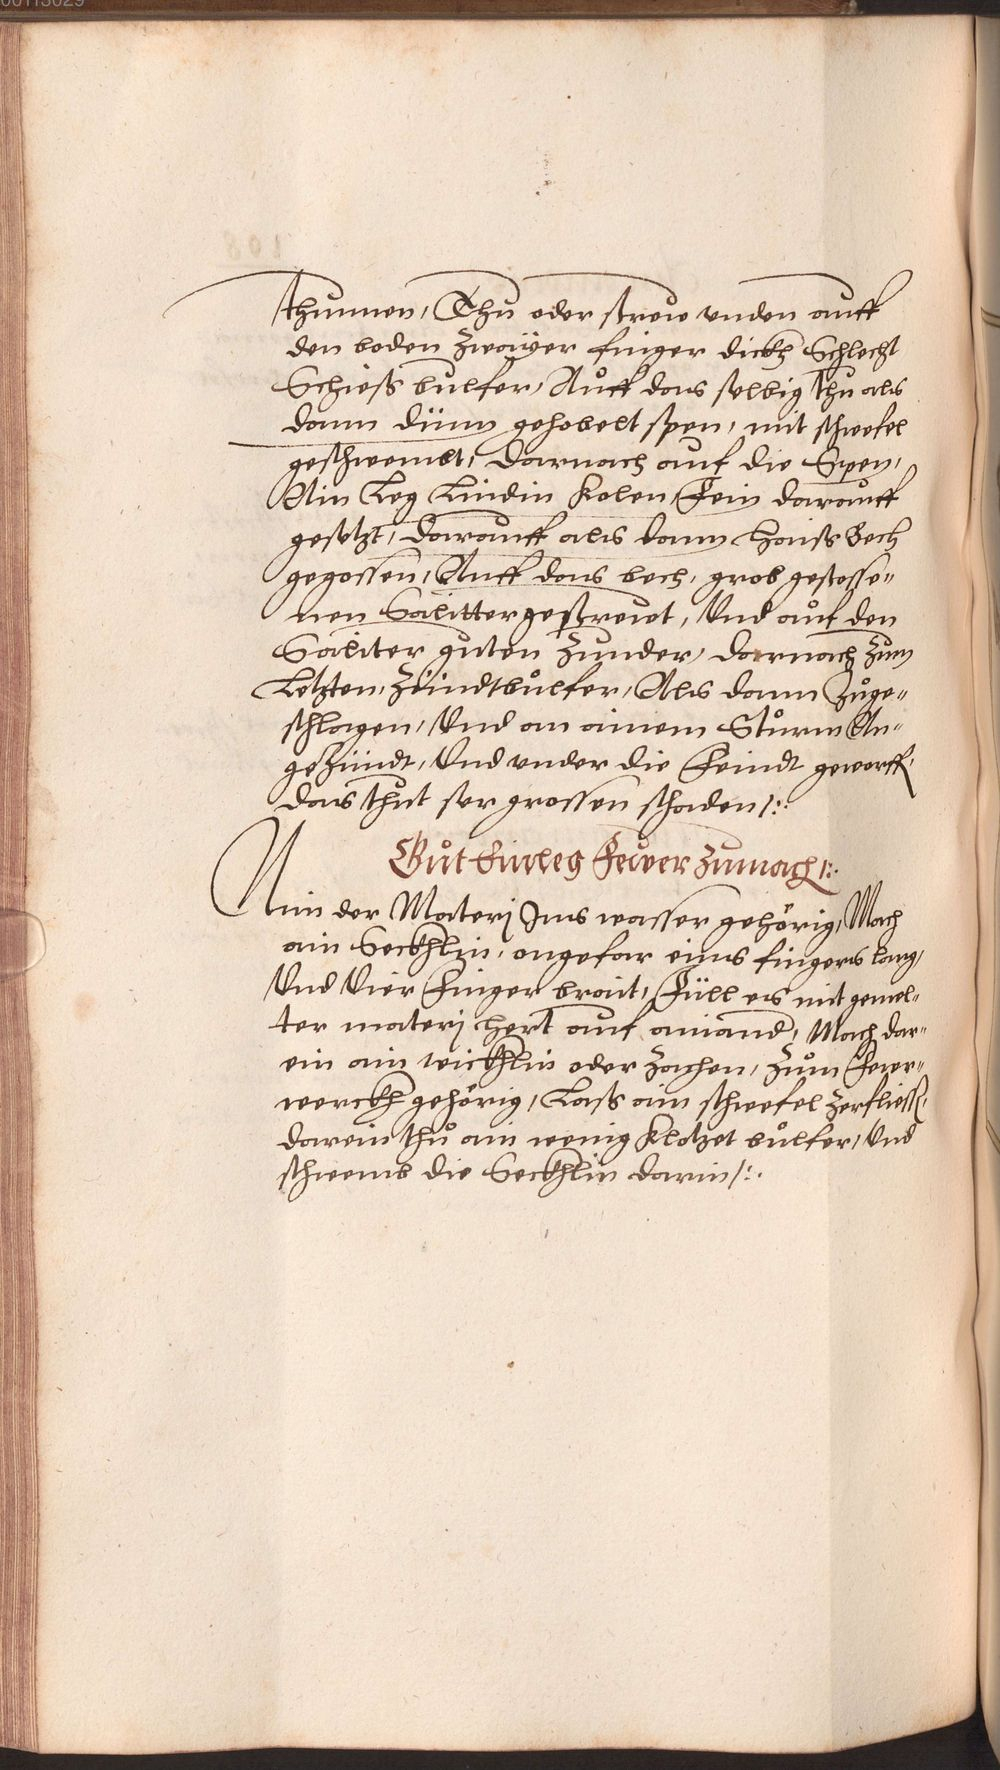 00113029
thunnen, Thu oder strew unden auff
den boden Zwaÿer finger dickh Schlecht
Schieß bulfer, Auff das selbig thu als
dann dünn gehobelt spen, mit schwefel
geschwembt, Darnach auf die Spen,
Ain Leg Lindin Kolen, Fein darauff
gesetzt, darauff als dann haiss Bech
gegossen, Auff das bech, grob gestosse„
nen Salitter gestrewet, Und auf den
Saliter guten Zunder, darnach Zum
Letzten, Zündtbůlfer, Als dann Zůge„
schlagen, Und an ainem Stůrm An„
gezündt, Und under die Feindt geworff,
das thut ser grossen schaden /:.
Gůt Einleg Fewer Zumach /:.
Nim der Materj Ins wasser gehörig, Mach
ain Seckhlin, ongefar eins fingers lang,
Und Vier Finger brait, Füll es mit gemel„
ter materj hert auf ainand, Mach dar„
ein ain wickhlin oder Zachen, Zům Fewer„
werckh gehörig, Lass ain schwefel Zerfliess,
darein thů ain wenig Klotzet bůlfer, Und
schwemb die Seckhlin darin /:.